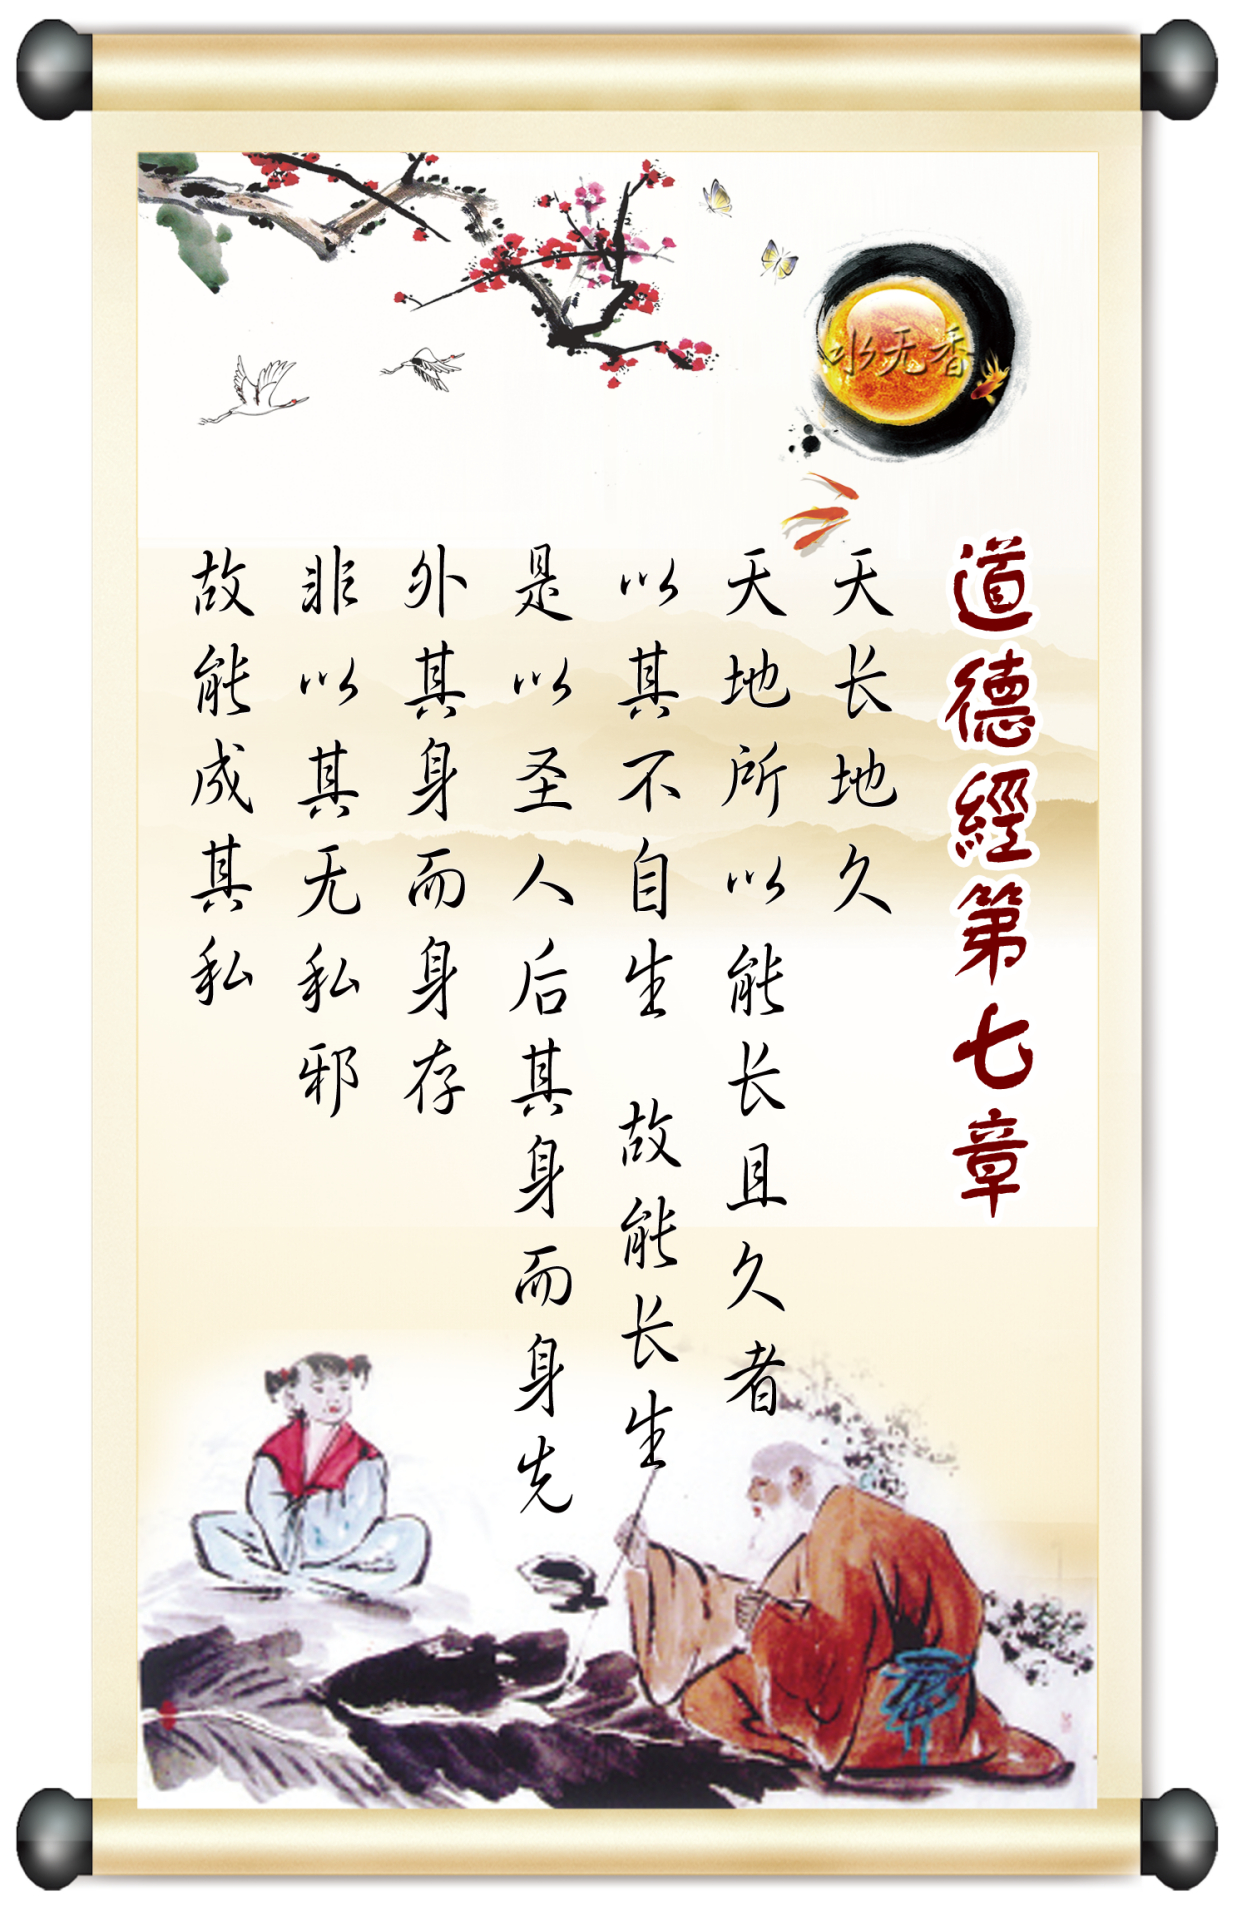 水无香
道德經第七章
天长地久
天地所以能长且久者
以其不自生 故能长生
是以圣人后其身而身先
外其身而身存
非以其无私邪
故能成其私